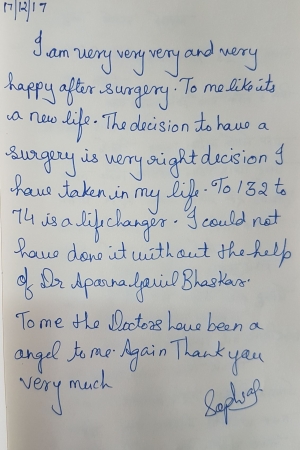 17/12/17
I am very very very and very
happy after surgery. To me like its
a new life. The decision to have a
surgery is very right decision I
have taken in my life. To 132 to
74 is a lifechanger. I could not
have done it without the help
of Dr Aparna Govil Bhasker.
To me the Doctors have been a
angel to me. Again Thank you
very much